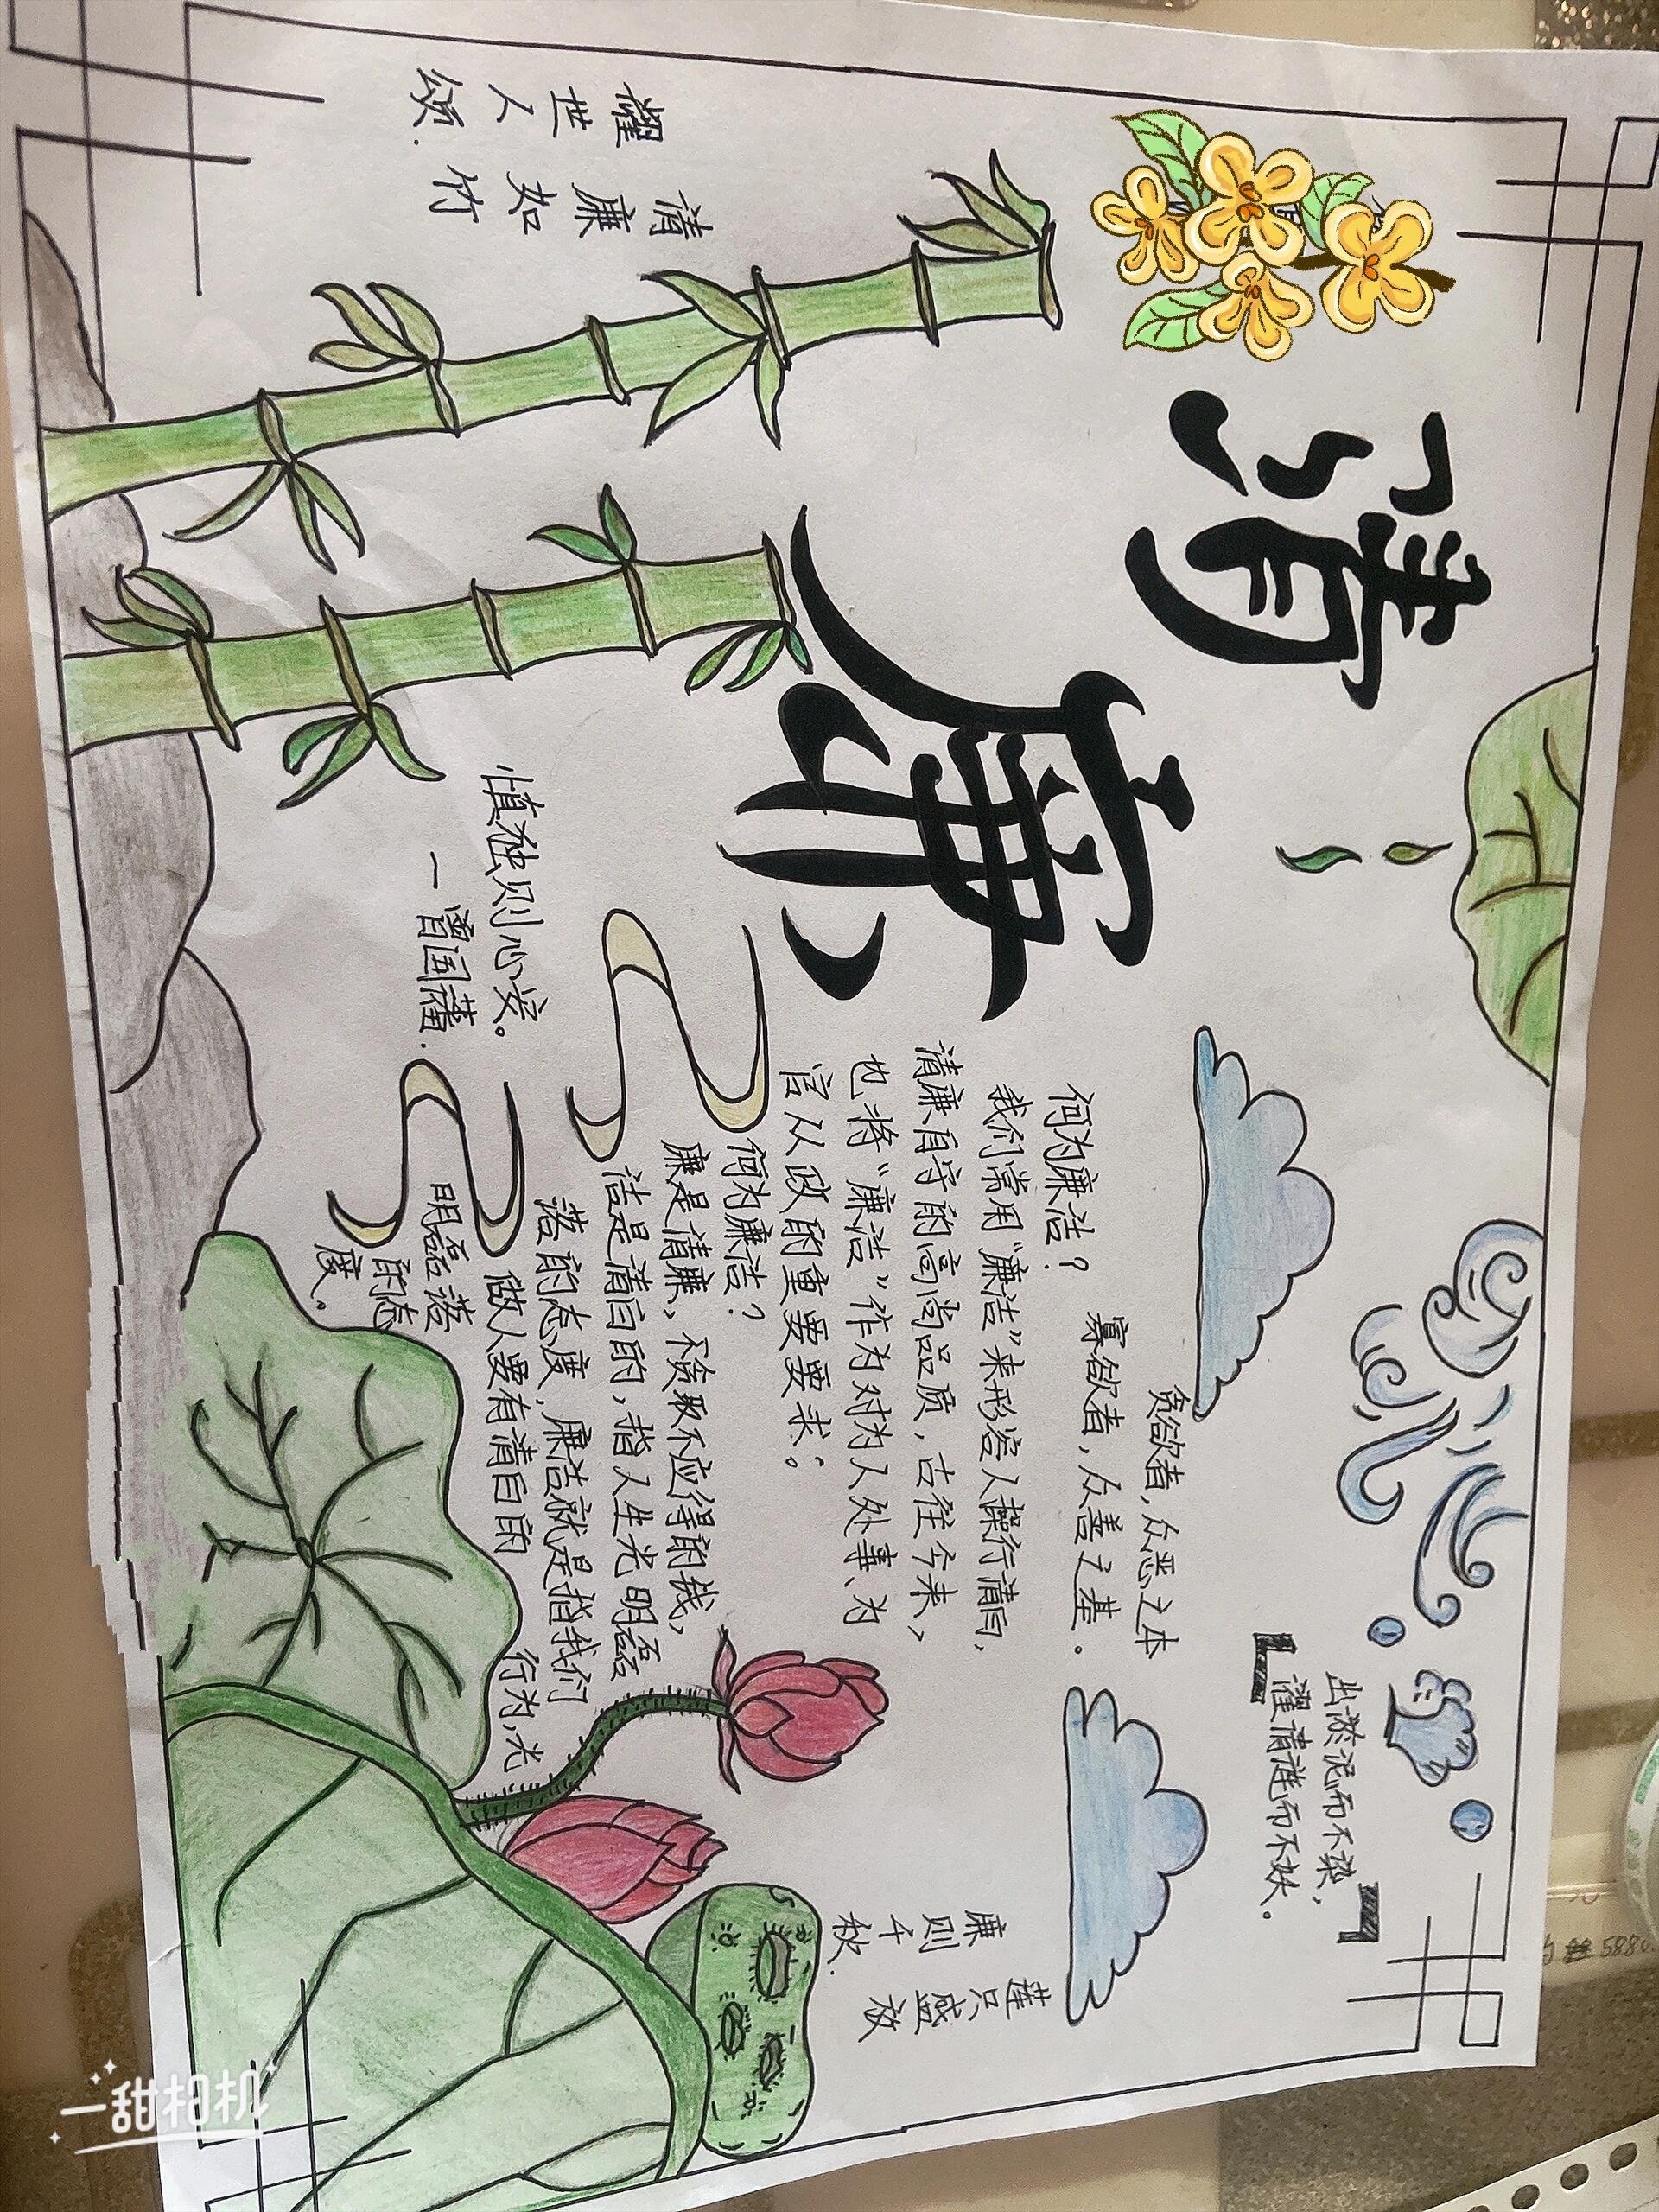 清廉
清廉如竹
耀世人颂.
慎独则心安。
一曾国藩.
出淤泥而不染，
濯清涟而不妖。
贪欲者，众恶之本
寡欲者，众善之基.
何为廉洁？
我们常用“廉洁”来形容人操行清白，
清廉自守的高尚品质，古往今来，
也将“廉洁”作为对为人处事、为
官从政的重要要求。
何为廉洁？
廉是清廉，不贪取不应得的钱，
洁是清白的，指人生光明磊
落的态度，廉洁就是指我们
做人要有清白的行为，光
明磊落
的态
度。
莲只盛放
廉则千秋.
一甜相机
588